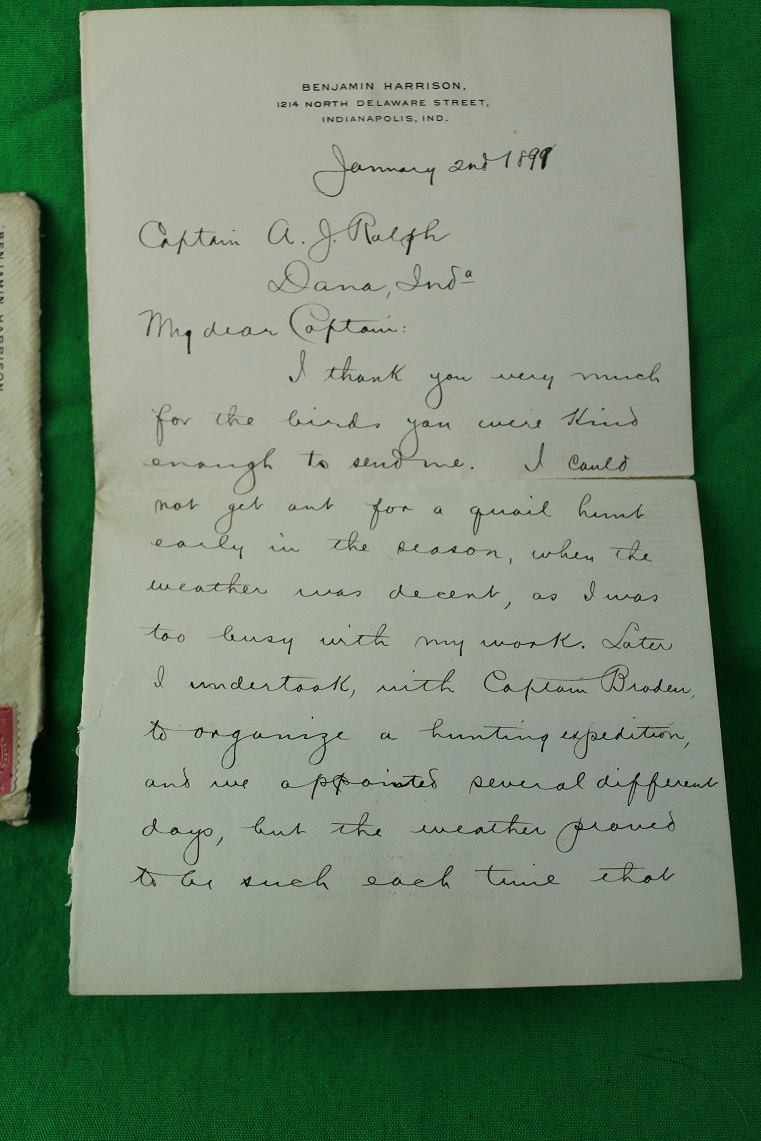 BENJAMIN HARRISON,
1214 NORTH DELAWARE STREET,
INDIANAPOLIS, IND.
January 2nd 1899
Captain A. J. Ralph
Dana, Inda
My dear Captain:
I thank you very much
for the birds you were kind
enough to send me. I could
not get out for a quail hunt
early in the season, when the
weather was decent, as I was
too busy with my work. Later
I undertook, with Captain Braden,
to organize a hunting expedition,
and we appointed several different
days, but the weather proved
to be such each time that
BENJAMIN HARRISON